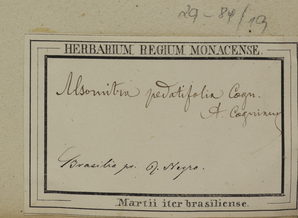 29-84/13
HERBARIUM REGIUM MONACENSE.
Alsomitra pedatifolia Cogn.
A. Cogniaux
Brasilia pr. R. Negro.
Martii iter brasiliense.